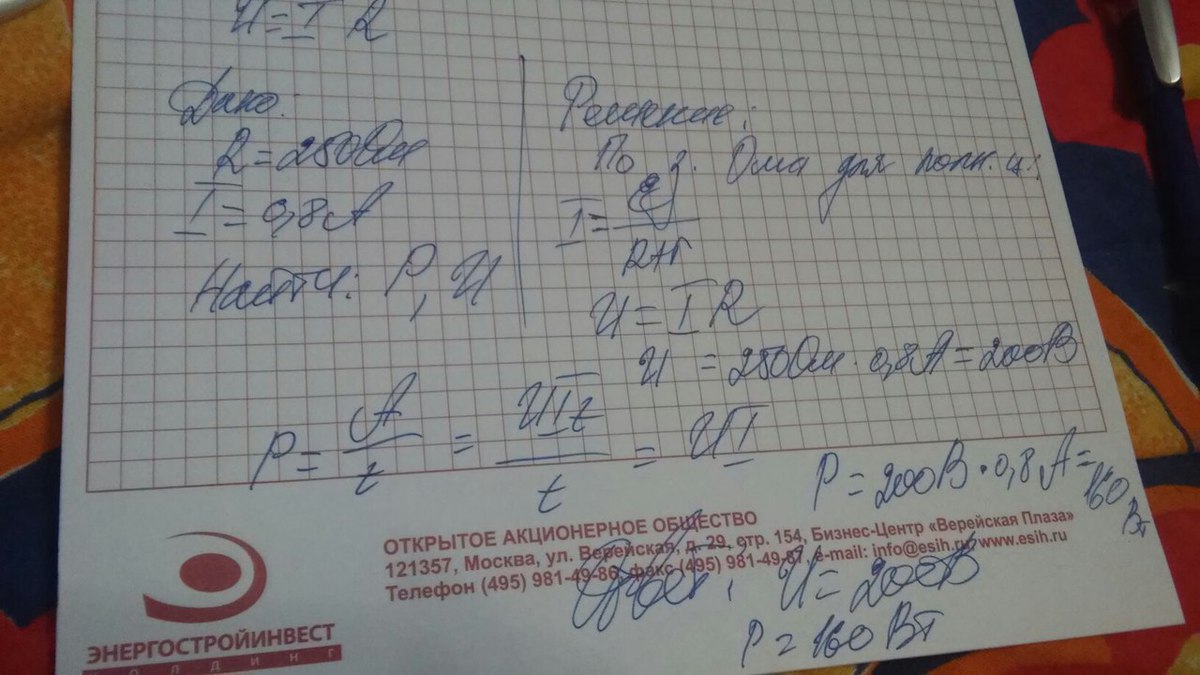 U = I R
Дано:
R = 250 Ом
I = 0,8 А
Найти: P, U
Решение:
По з. Ома для полн. ц.:
I = ℰ / R+r
U = I R
U = 250 Ом · 0,8 А = 200 В
P = A / t = UIt / t = UI
P = 200 В · 0,8 А = 160 Вт
ОТКРЫТОЕ АКЦИОНЕРНОЕ ОБЩЕСТВО
121357, Москва, ул. Верейская, д. 29, стр. 154, Бизнес-Центр «Верейская Плаза»
Телефон (495) 981-49-86, факс (495) 981-49-87, e-mail: info@esih.ru, www.esih.ru
Ответ: U = 200 В
P = 160 Вт
ЭНЕРГОСТРОЙИНВЕСТ
ХОЛДИНГ